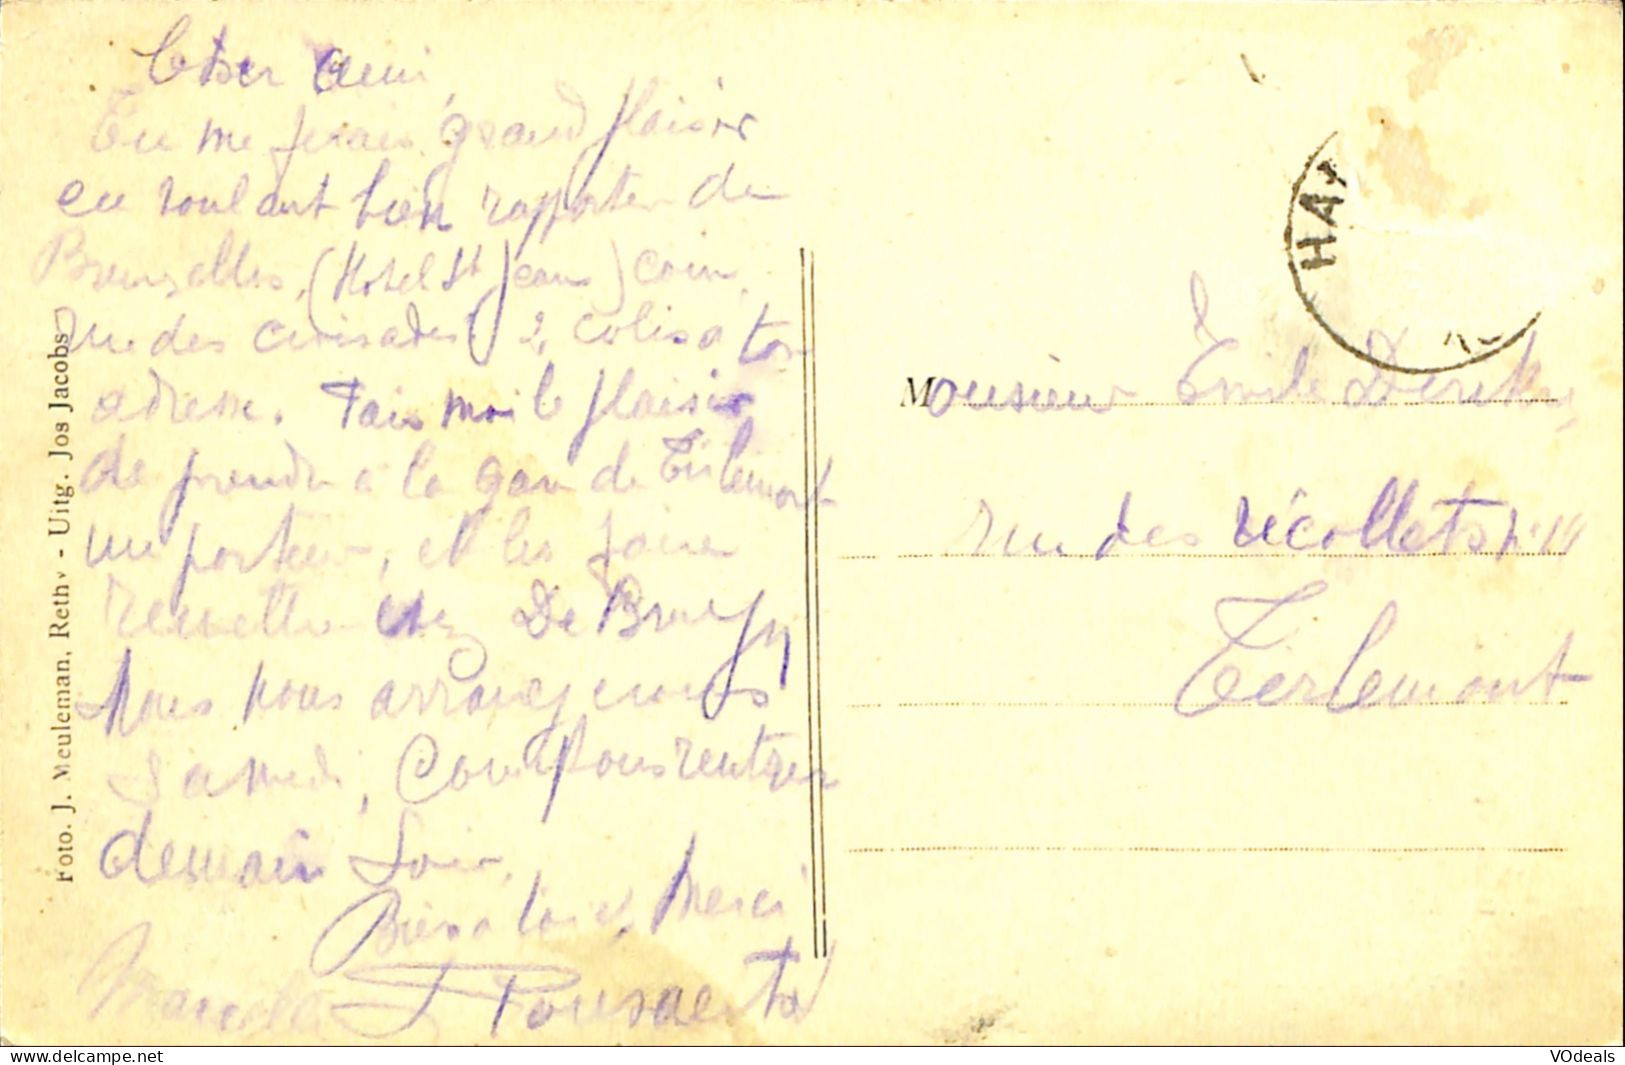 Cher ami,
Tu me ferais grand plaisir
en voulant bien rapporter de
Bruxelles, (Hotel St Jean) coin
rue des croisades 2 colis a ton
adresse. Fais moi le plaisir
de prendre à la gare de Tirlemont
un porteur, et les faire
remettre chez De Bruyn
Nous nous arrangerons
Samedi, Compt pous rentrer
demain Soir.
Bien a toi et Merci
Pousaerts
Foto. J. Meuleman, Rethy - Uitg. Jos Jacobs
HA
Monsieur Emile
rue des récollets
Tirlemont
VOdeals